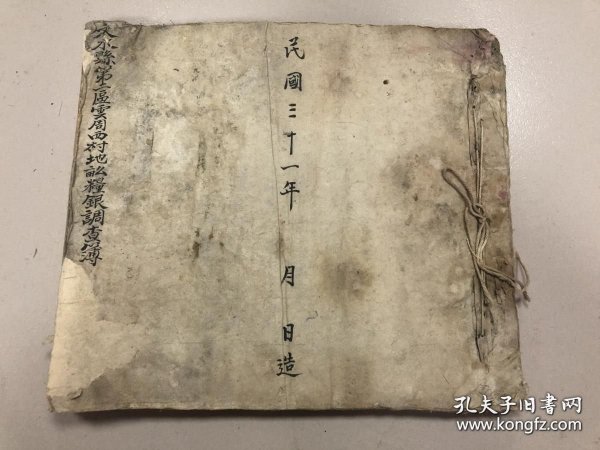 民國三十一年 月 日造
文水縣第二區雲周西村地畝糧銀調查簿
孔夫子旧书网
www.kongfz.com